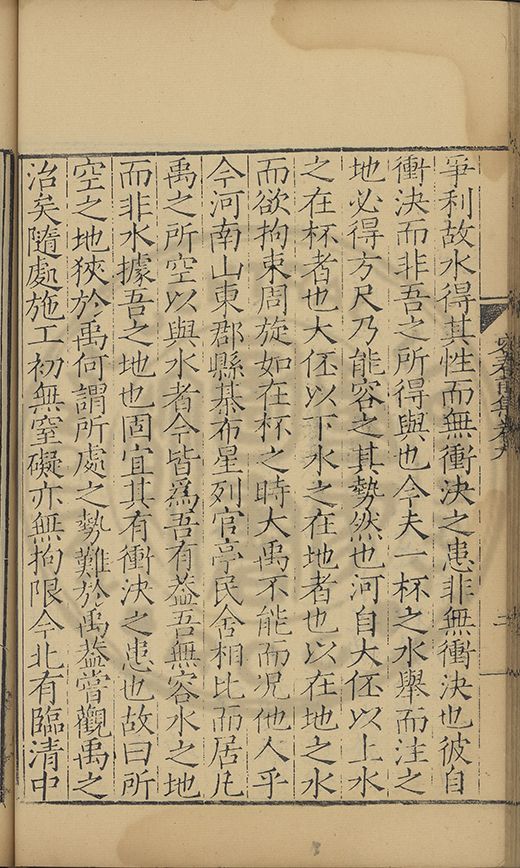 爭利故水得其性而無衝決之患非無衝決也彼自
衝決而非吾之所得與也今夫一杯之水舉而注之
地必得方尺乃能容之其勢然也河自大伾以上水
之在杯者也大伾以下水之在地者也以在地之水
而欲拘束周旋如在杯之時大禹不能而况他人乎
今河南山東郡縣棊布星列官亭民舍相比而居凡
禹之所空以與水者今皆爲吾有葢吾無容水之地
而非水據吾之地也固宜其有衝決之患也故曰所
空之地狹於禹何謂所處之勢難於禹葢嘗觀禹之
治矣隨處施工初無窒礙亦無拘限今北有臨清中